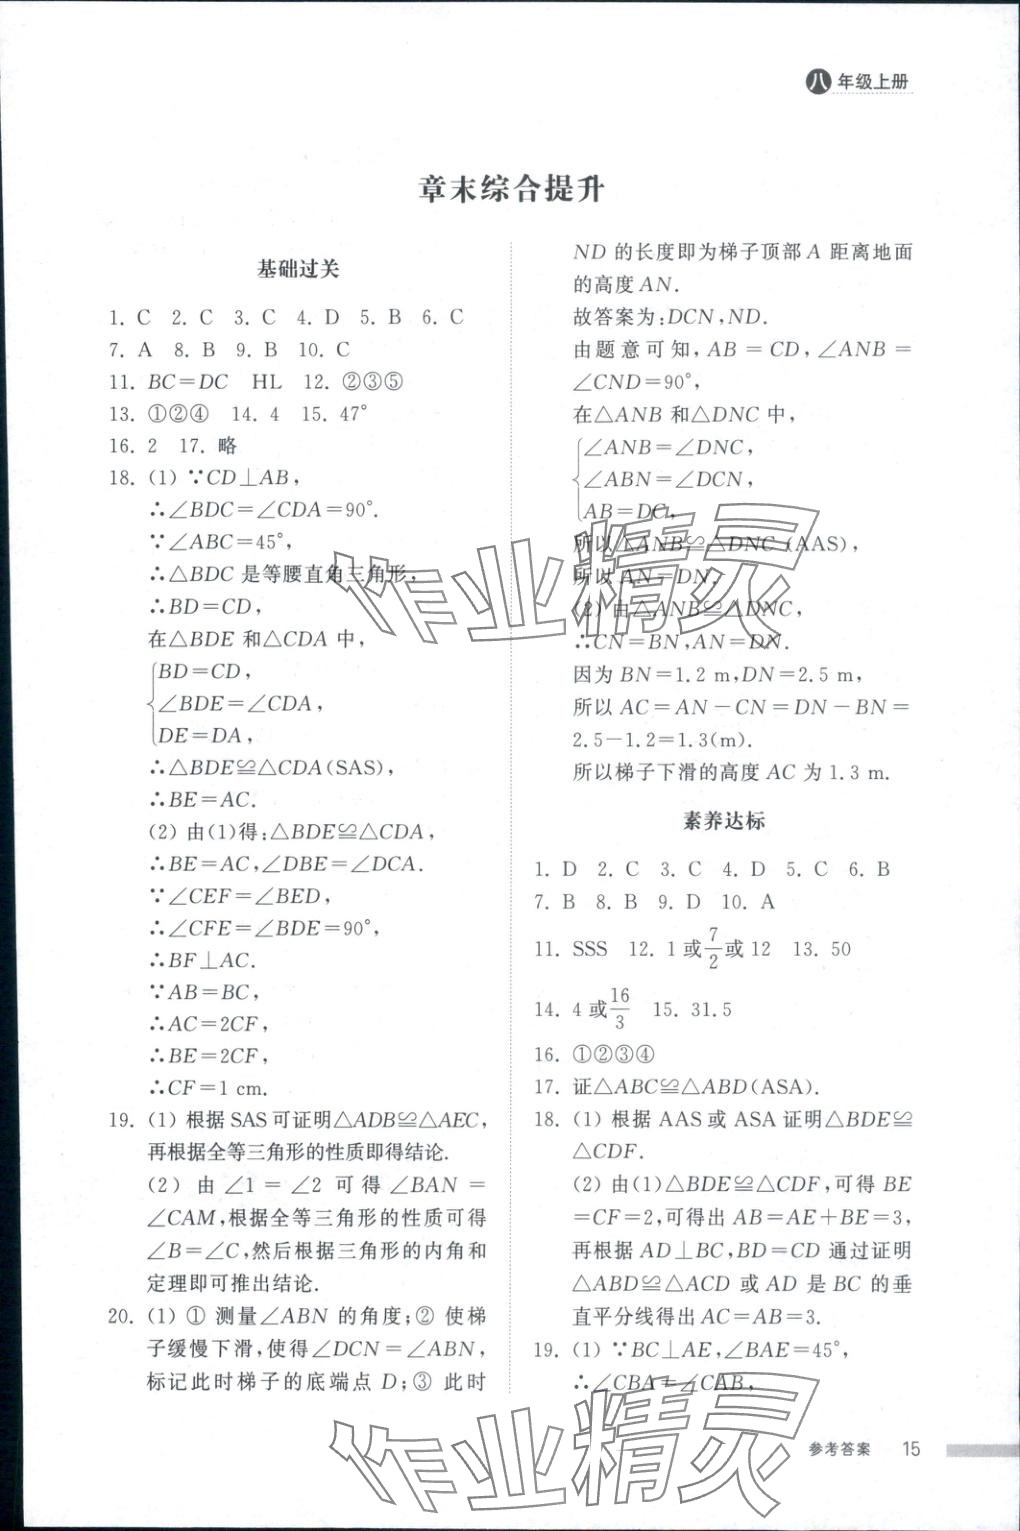 八年级上册
章末综合提升
基础过关
1. C 2. C 3. C 4. D 5. B 6. C
7. A 8. B 9. B 10. C
11. BC=DC HL 12. ②③⑤
13. ①②④ 14. 4 15. 47°
16. 2 17. 略
18. (1) ∵CD⊥AB,
∴∠BDC=∠CDA=90°.
∵∠ABC=45°,
∴△BDC 是等腰直角三角形,
∴BD=CD,
在△BDE 和△CDA 中,
BD=CD,
∠BDE=∠CDA,
DE=DA,
∴△BDE≌△CDA(SAS),
∴BE=AC.
(2) 由(1)得:△BDE≌△CDA,
∴BE=AC,∠DBE=∠DCA.
∵∠CEF=∠BED,
∴∠CFE=∠BDE=90°,
∴BF⊥AC.
∵AB=BC,
∴AC=2CF,
∴BE=2CF,
∴CF=1 cm.
19. (1) 根据 SAS 可证明△ADB≌△AEC,
再根据全等三角形的性质即得结论.
(2) 由 ∠1=∠2 可得 ∠BAN=
∠CAM,根据全等三角形的性质可得
∠B=∠C,然后根据三角形的内角和
定理即可推出结论.
20. (1) ① 测量∠ABN 的角度;② 使梯
子缓慢下滑,使得∠DCN=∠ABN,
标记此时梯子的底端点 D;③ 此时
ND 的长度即为梯子顶部 A 距离地面
的高度 AN.
故答案为:DCN,ND.
由题意可知,AB=CD,∠ANB=
∠CND=90°,
在△ANB 和△DNC 中,
∠ANB=∠DNC,
∠ABN=∠DCN,
AB=DC,
所以△ANB≌△DNC(AAS),
所以 AN=DN.
(2) 由△ANB≌△DNC,
∴CN=BN,AN=DN.
因为 BN=1.2 m,DN=2.5 m,
所以 AC=AN-CN=DN-BN=
2.5-1.2=1.3(m).
所以梯子下滑的高度 AC 为 1.3 m.
素养达标
1. D 2. C 3. C 4. D 5. C 6. B
7. B 8. B 9. D 10. A
11. SSS 12. 1 或 7/2 或 12 13. 50
14. 4 或 16/3 15. 31.5
16. ①②③④
17. 证△ABC≌△ABD(ASA).
18. (1) 根据 AAS 或 ASA 证明△BDE≌
△CDF.
(2) 由(1)△BDE≌△CDF,可得 BE
=CF=2,可得出 AB=AE+BE=3,
再根据 AD⊥BC,BD=CD 通过证明
△ABD≌△ACD 或 AD 是 BC 的垂
直平分线得出 AC=AB=3.
19. (1) ∵BC⊥AE,∠BAE=45°,
∴∠CBA=∠CAB,
参考答案 15
作业精灵
作业精灵